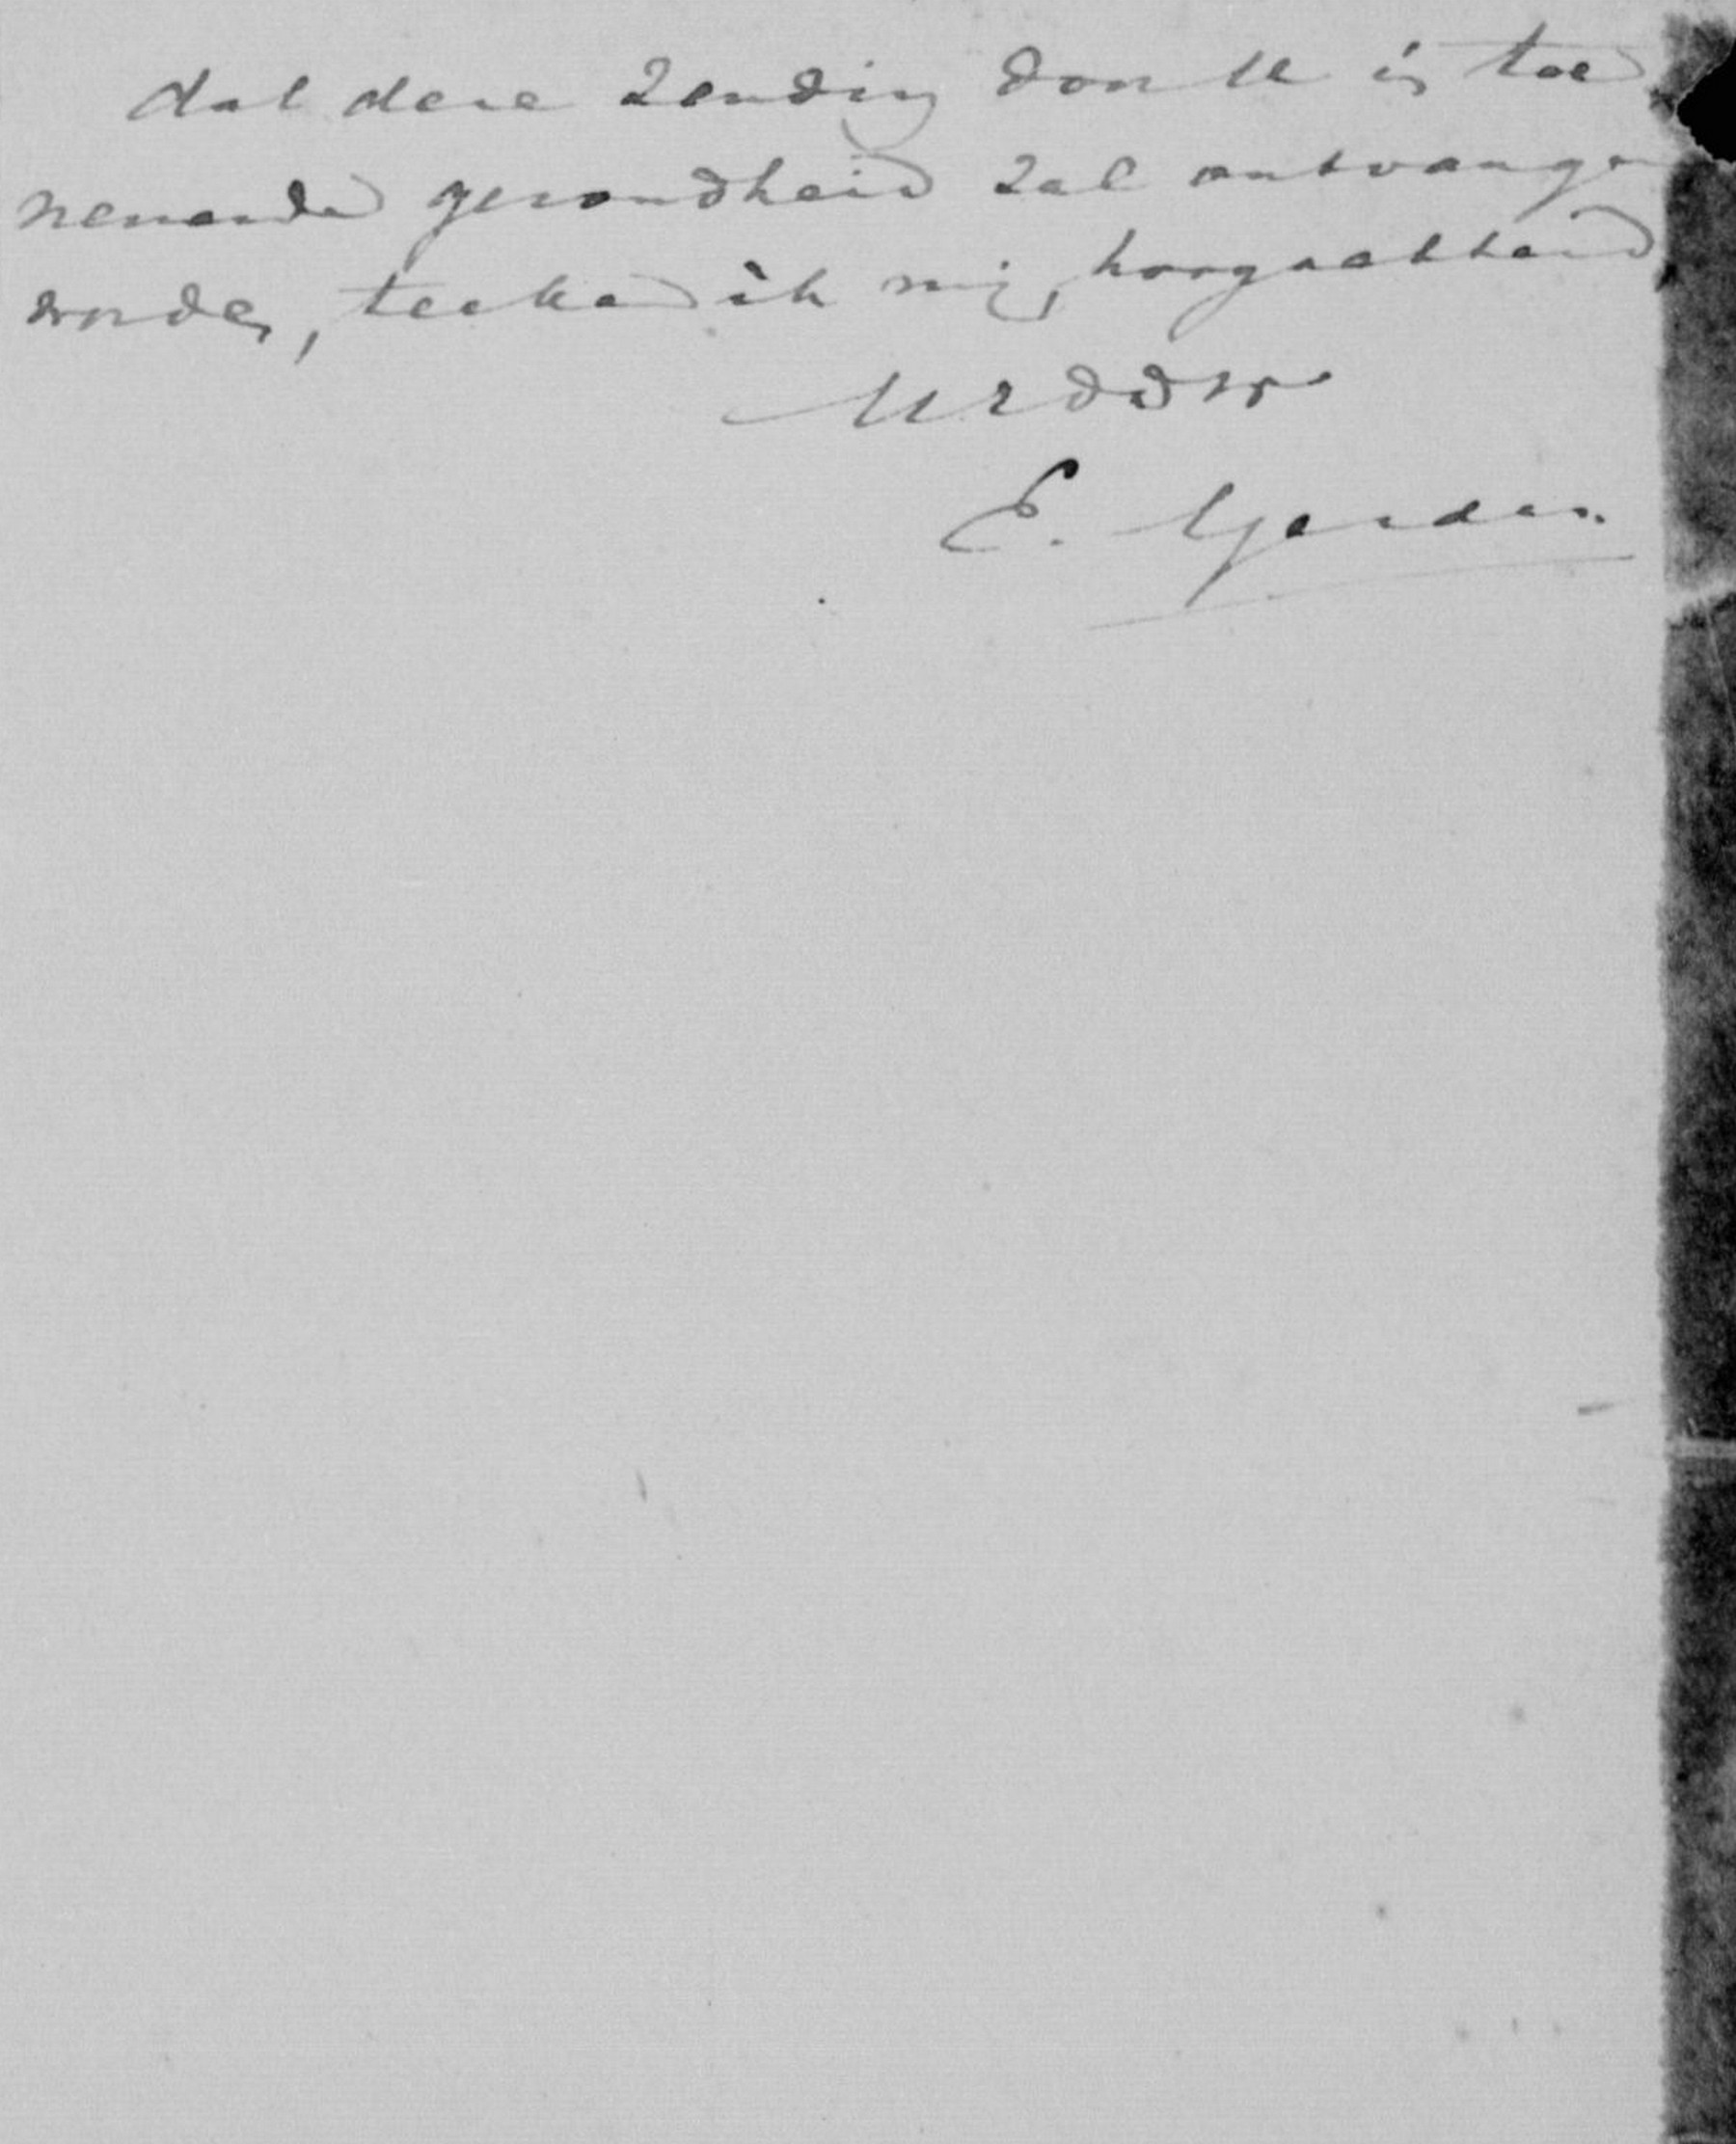 dat deze zending door U in toe
nemende gezondheid zal ontvangen
worden, teeken ik mij, hoogachtend
UEDDW
E.